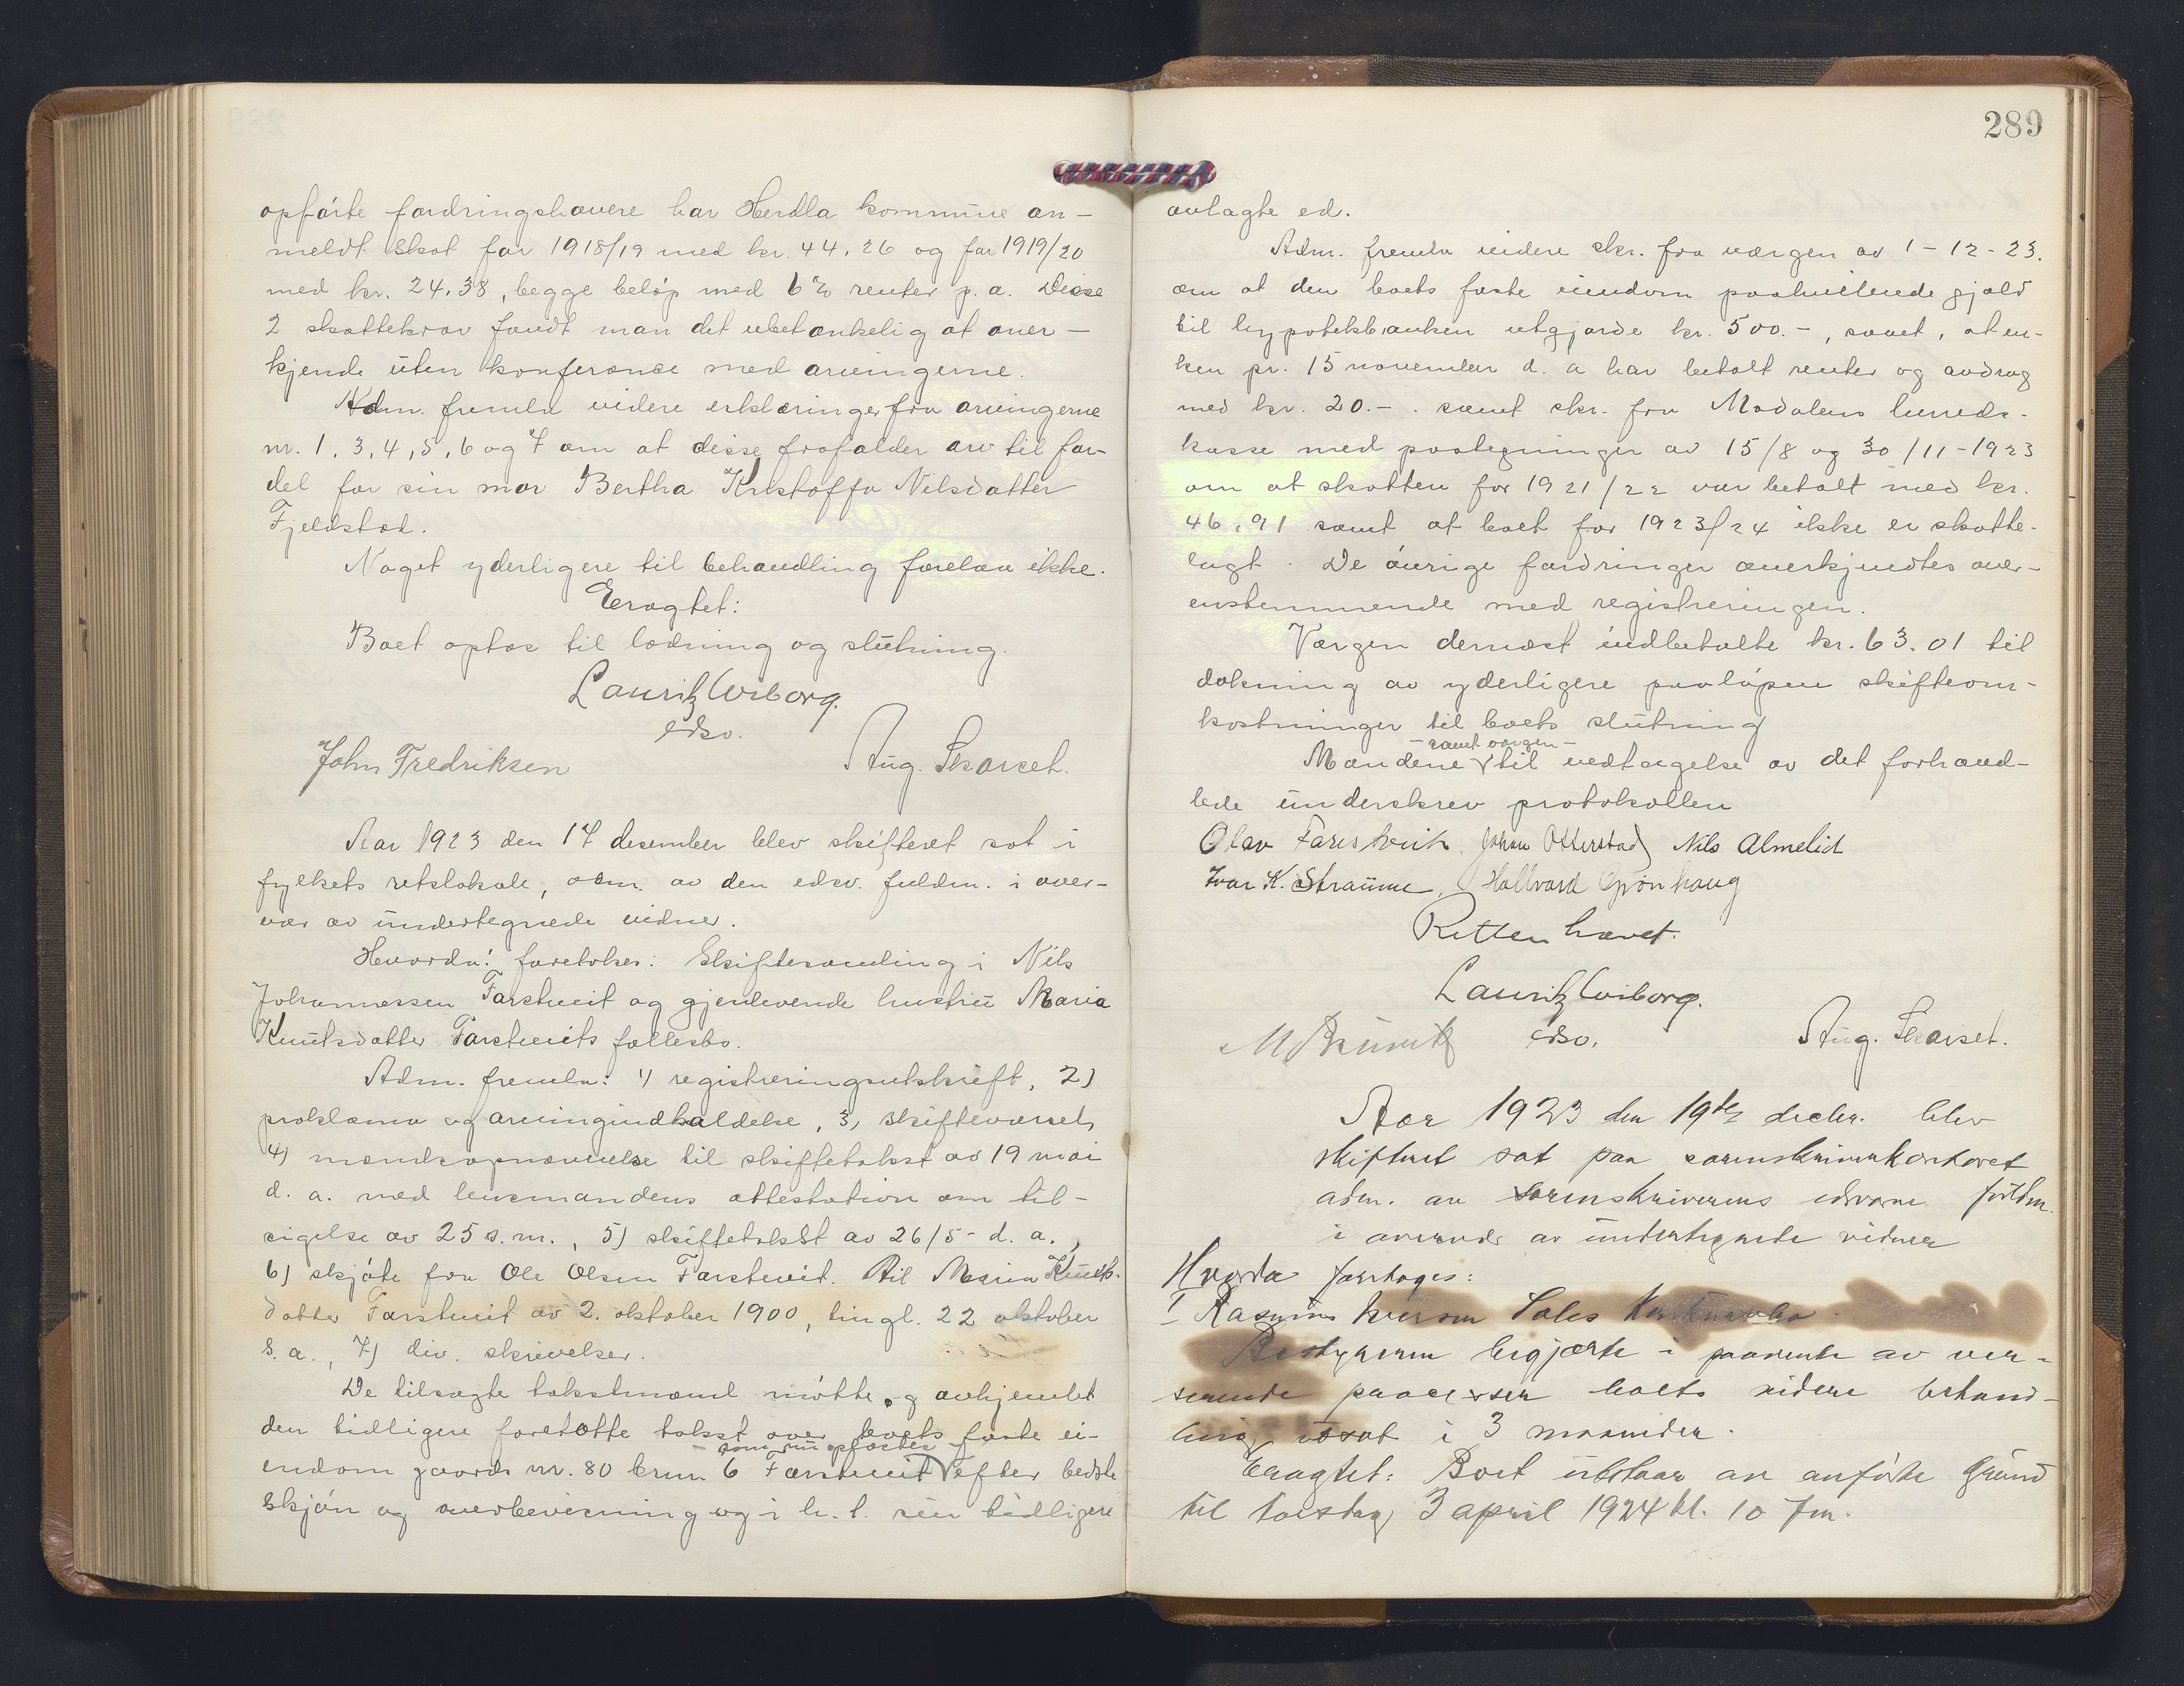 opførte fordringshavere har Herdla kommune an-
meldt skat for 1918/19 med kr. 44,26 og for 1919/20
med kr. 24,38, begge beløp med 6% renter p. a. Disse
2 skattekrav fandt man det ubetænkelig at aner-
kjende uten konferanse med arvingerne.
Adm. fremla videre erklæringer fra arvingerne
nr. 1, 3, 4, 5, 6 og 7 om at disse frafalder arv til for-
del for sin mor Bertha Kristoffa Nilsdatter
Fjeldstad.
Noget yderligere til behandling forelaa ikke.
Eragtet:
Boet optas til lodning og slutning.
Lauritz Wiborg.
edsv.
John Fredriksen Aug. Skarset.
Aar 1923 den 17 desember blev skifteret sat i
fylkets retslokale, adm. av den edsv. fuldm. i over-
vær av undertegnede vidner.
Hvorda: foretokes: Skiftesamling i Nils
Johannessen Farstveit og gjenlevende hustru Maria
Knutsdatter Farstveits fællesbo.
Adm. fremla: 1) registreringsutskrift, 2)
proklama og arvingindkaldelse, 3, skiftevarsel,
4) mændsopnævnelse til skiftetakst av 19 mai
d. a. med lensmandens attestation om til-
sigelse av 25 s. m., 5) skiftetakst av 26/5- d. a.,
6) skjøte fra Ole Olsen Farstveit. til Maria Knuts-
datter Farstveit av 2. oktober 1900, tingl. 22 oktober
s. a., 7) div. skrivelser.
De tilsagte takstmænd møtte og avhjemlet
den tidligere foretatte takst over boets faste ei-
- som nu opføstes -
endom gaards nr. 80 brnr. 6 Farstveit efter bedste
skjøn og overbevisning og i h. t. sin tidligere
289
avlagte ed.
Adm. fremla videre skr. fra værgen av 1-12-23.
om at den boets faste eiendom paahvilende gjæld
til hypotekbanken utgjorde kr. 500.-, samt, at en-
ken pr. 15 november d. a har betalt renter og avdrag
med kr. 20.-. samt skr. fra Modalens herreds-
kasse med paategninger av 15/8 og 30/11-1923
om at skatten for 1921/22 var betalt med kr.
46,91 samt at boet for 1923/24 ikke er skatte-
lagt. De øvrige fordringer anerkjendtes over-
enstemmende med registreringen.
Værgen dernæst indbetalte kr. 63.01 til
dækning av yderligere paaløpne skifteom-
kostninger til boets slutning
- samt værgen -
Mændene til vedtagelse av det forhand-
lede underskrev protokollen
Olav Farestveit. Johan Otterstad Nils Almelid
Ivar K. Straume, Hallvard Grønhaug
Retten hævet.
Lauritz Wiborg.
edsv. Aug. Skarset.
Aar 1923 den 19de decbr. blev
skifteret sat paa sorenskriverkontoret
adm. av sorenskriverens edsvorne fuldm.
i overvær av undertegnede vidner
Hvorda foretoges:
I Rasmus Iversen Sales Konkursbo
Bestyreren begjærte i paavente av ver-
serende processer boets videre behand-
ling utsat i 3 maaneder.
Eragtet: Boet utstaar av anførte grund
til torsdag 3 april 1924 kl. 10 fm.